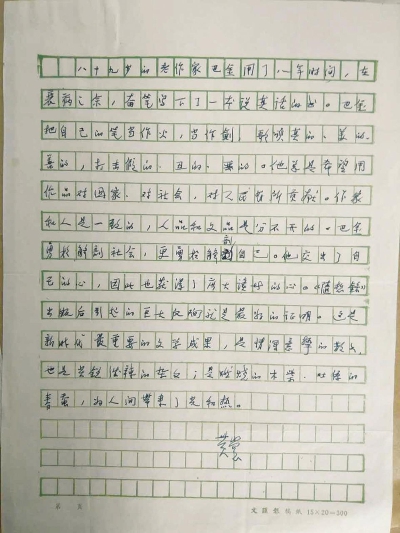 八十九岁的老作家巴金用了八年时间，在
衰病之余，奋笔写下了一本说真话的书。巴金
把自己的笔当作火，当作剑，歌颂真的、美的、
善的，打击假的、丑的、恶的。他总是希望用
作品对国家、对社会、对人民有所贡献。作家
和人是一致的，人品和文品是分不开的。巴金
勇于解剖社会，更勇于解剖自己。他交出了自
己的心，因此也获得了广大读者的心。《随想录》
出版后引起的巨大反响就是最好的证明。这是
新时期最重要的文学成果，是
也是 的 ；是燃烧的木柴、吐丝的
春蚕，为人间带来了光和热。
黄裳
第 页 文汇报稿纸 15×20=300